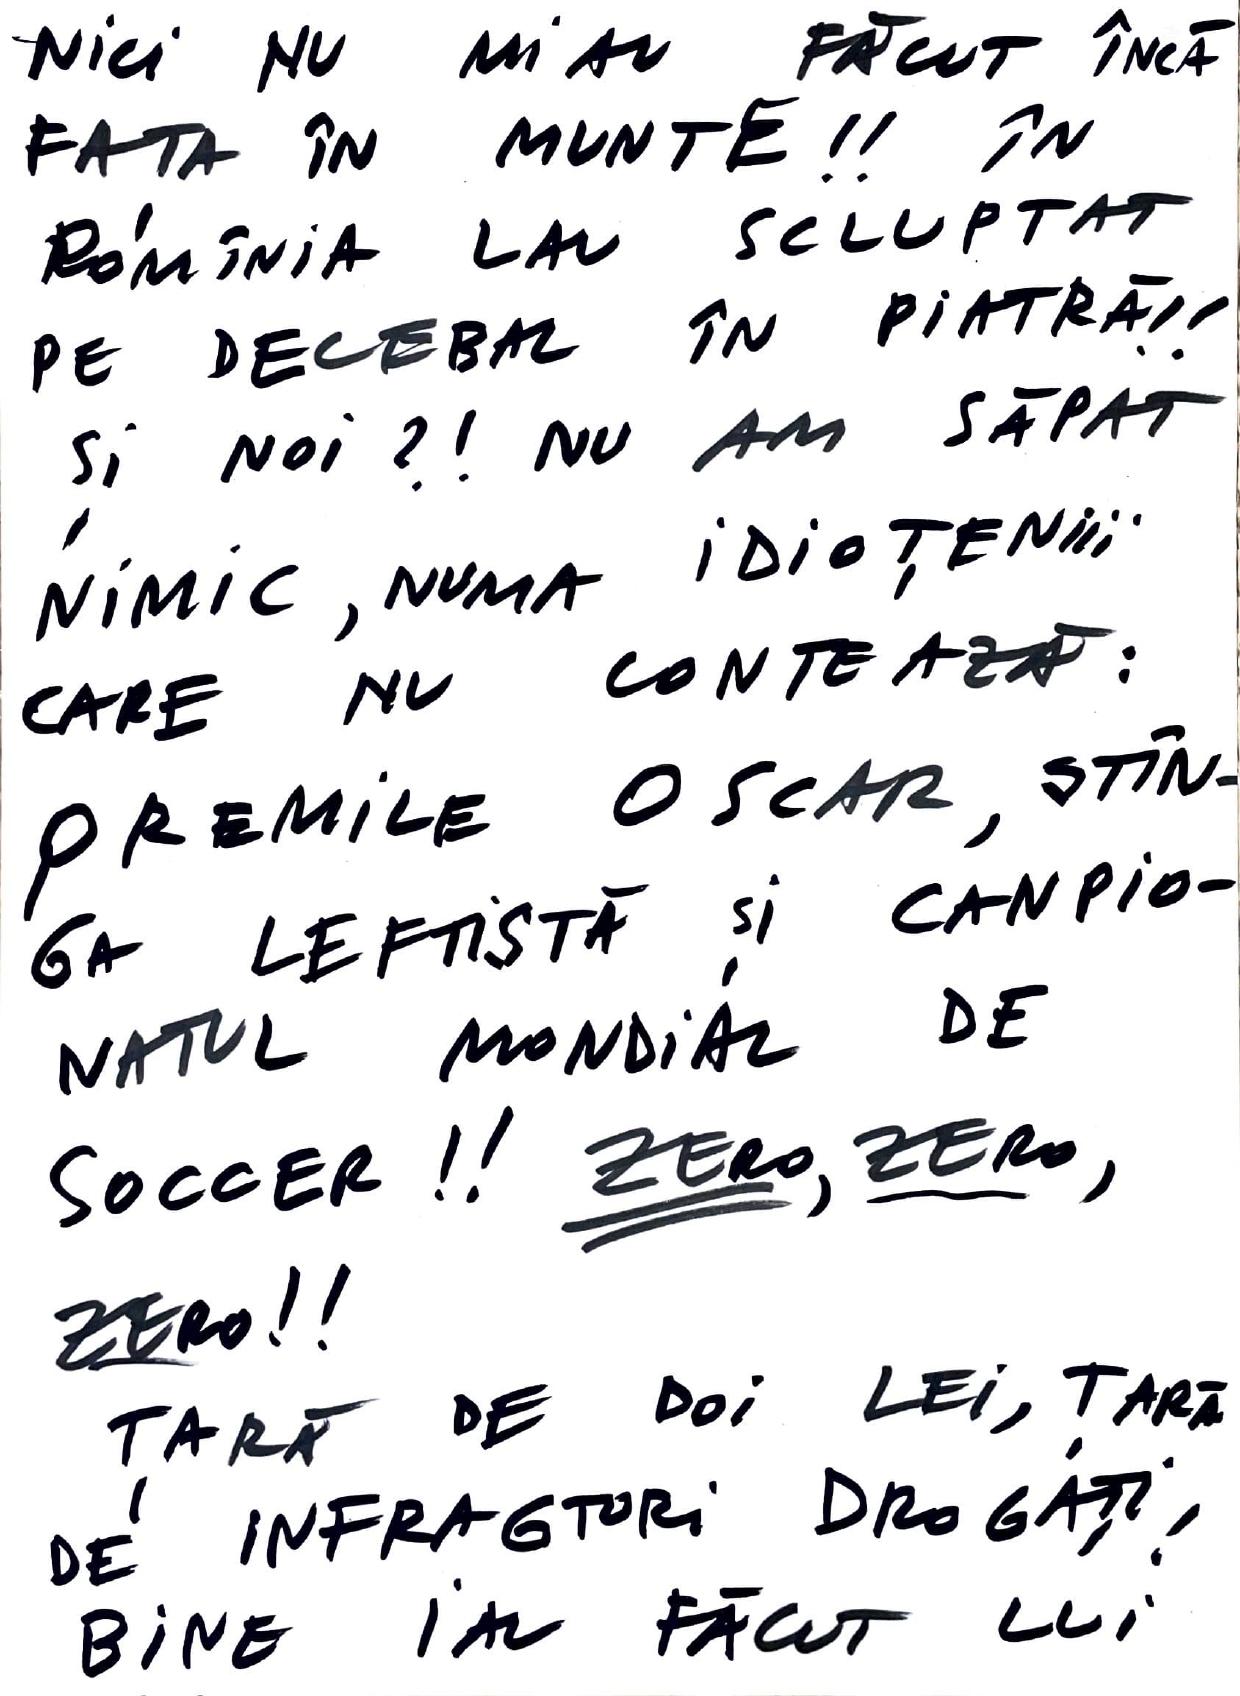 NICI NU MIAU FĂCUT ÎNCĂ
FAȚA ÎN MUNTE!! ÎN
ROMÎNIA LAU SCLUPTAT
PE DECEBAL ÎN PIATRĂ!!
ȘI NOI?! NU AM SĂPAT
NIMIC, NUMA IDIOȚENIII
CARE NU CONTEAZĂ:
PREMILE OSCAR, STÎN-
GA LEFTISTĂ ȘI CANPIO-
NATUL MONDIAL DE
SOCCER!! ZERO, ZERO,
ZERO!!
ȚARĂ DE DOI LEI, ȚARĂ
DE INFRAGTORI DROGAȚI!
BINE IAU FĂCUT LUI